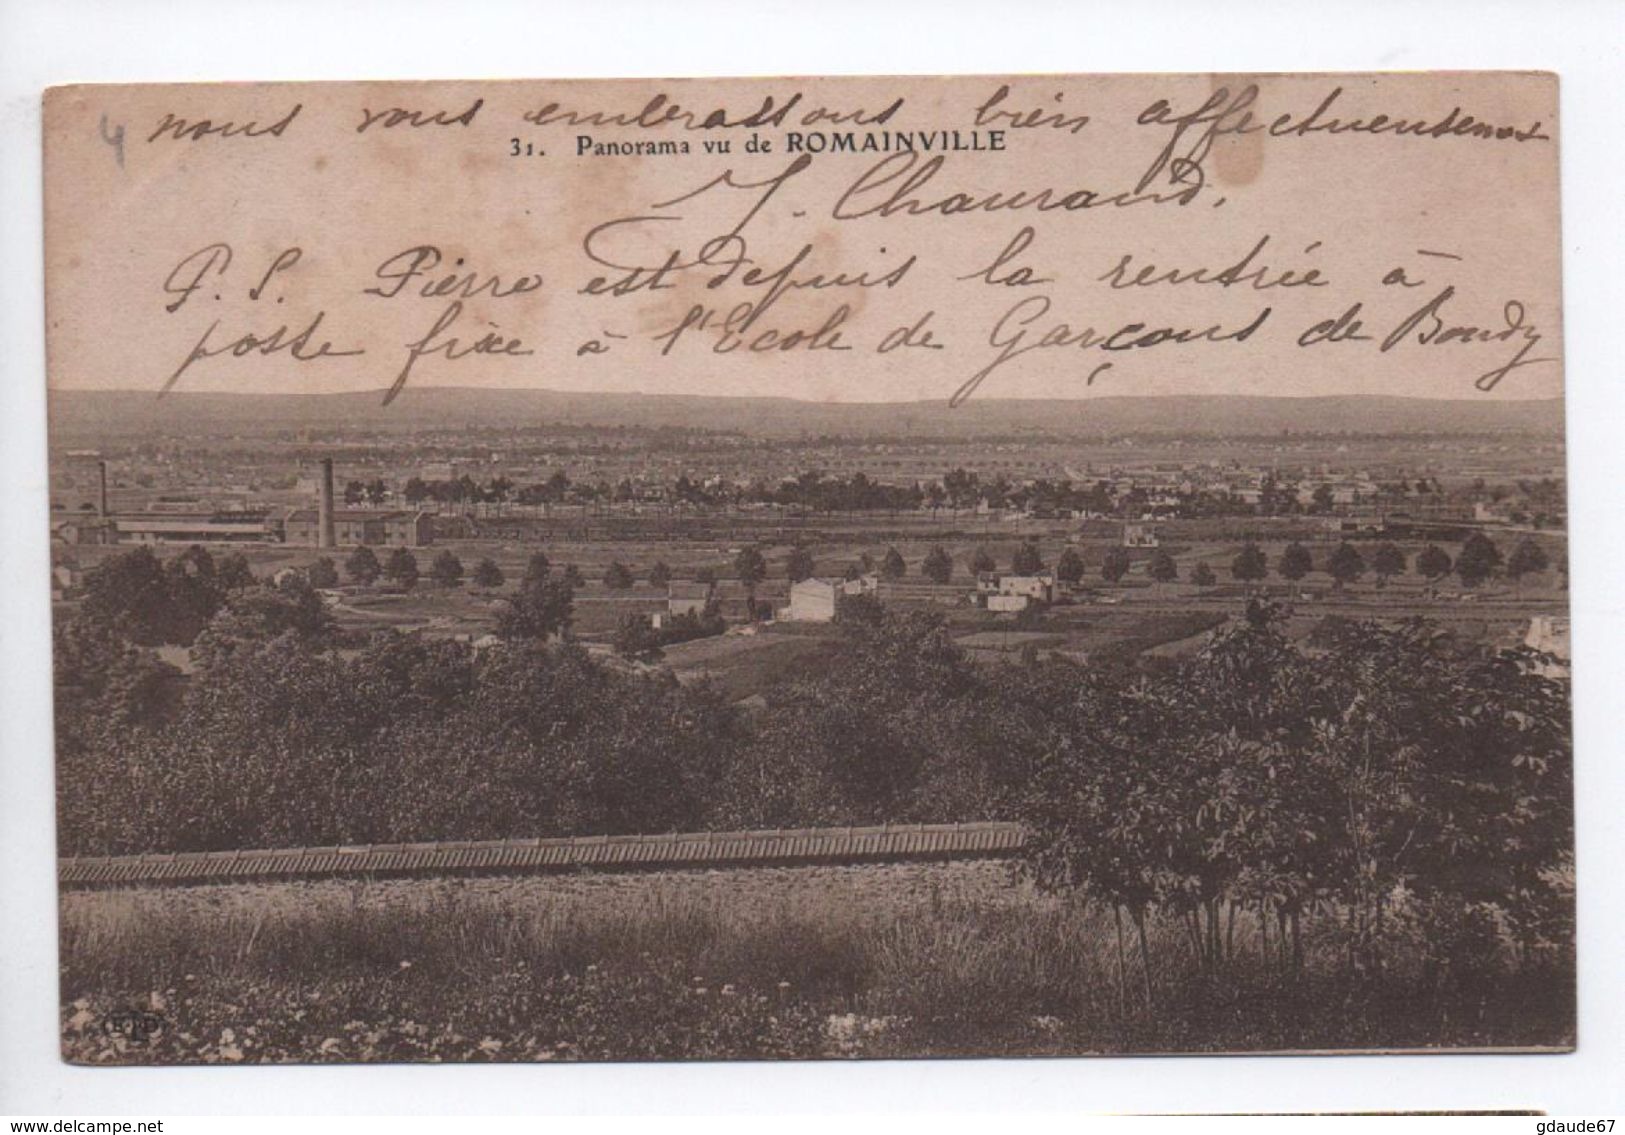 4
nous vous embrassons bien affectueusement
31. Panorama vu de ROMAINVILLE
J. Chaurand.
P. S. Pierre est depuis la rentrée à
poste fixe à l'Ecole de Garçons de Bondy
ELD
delcampe.net
gdaude67